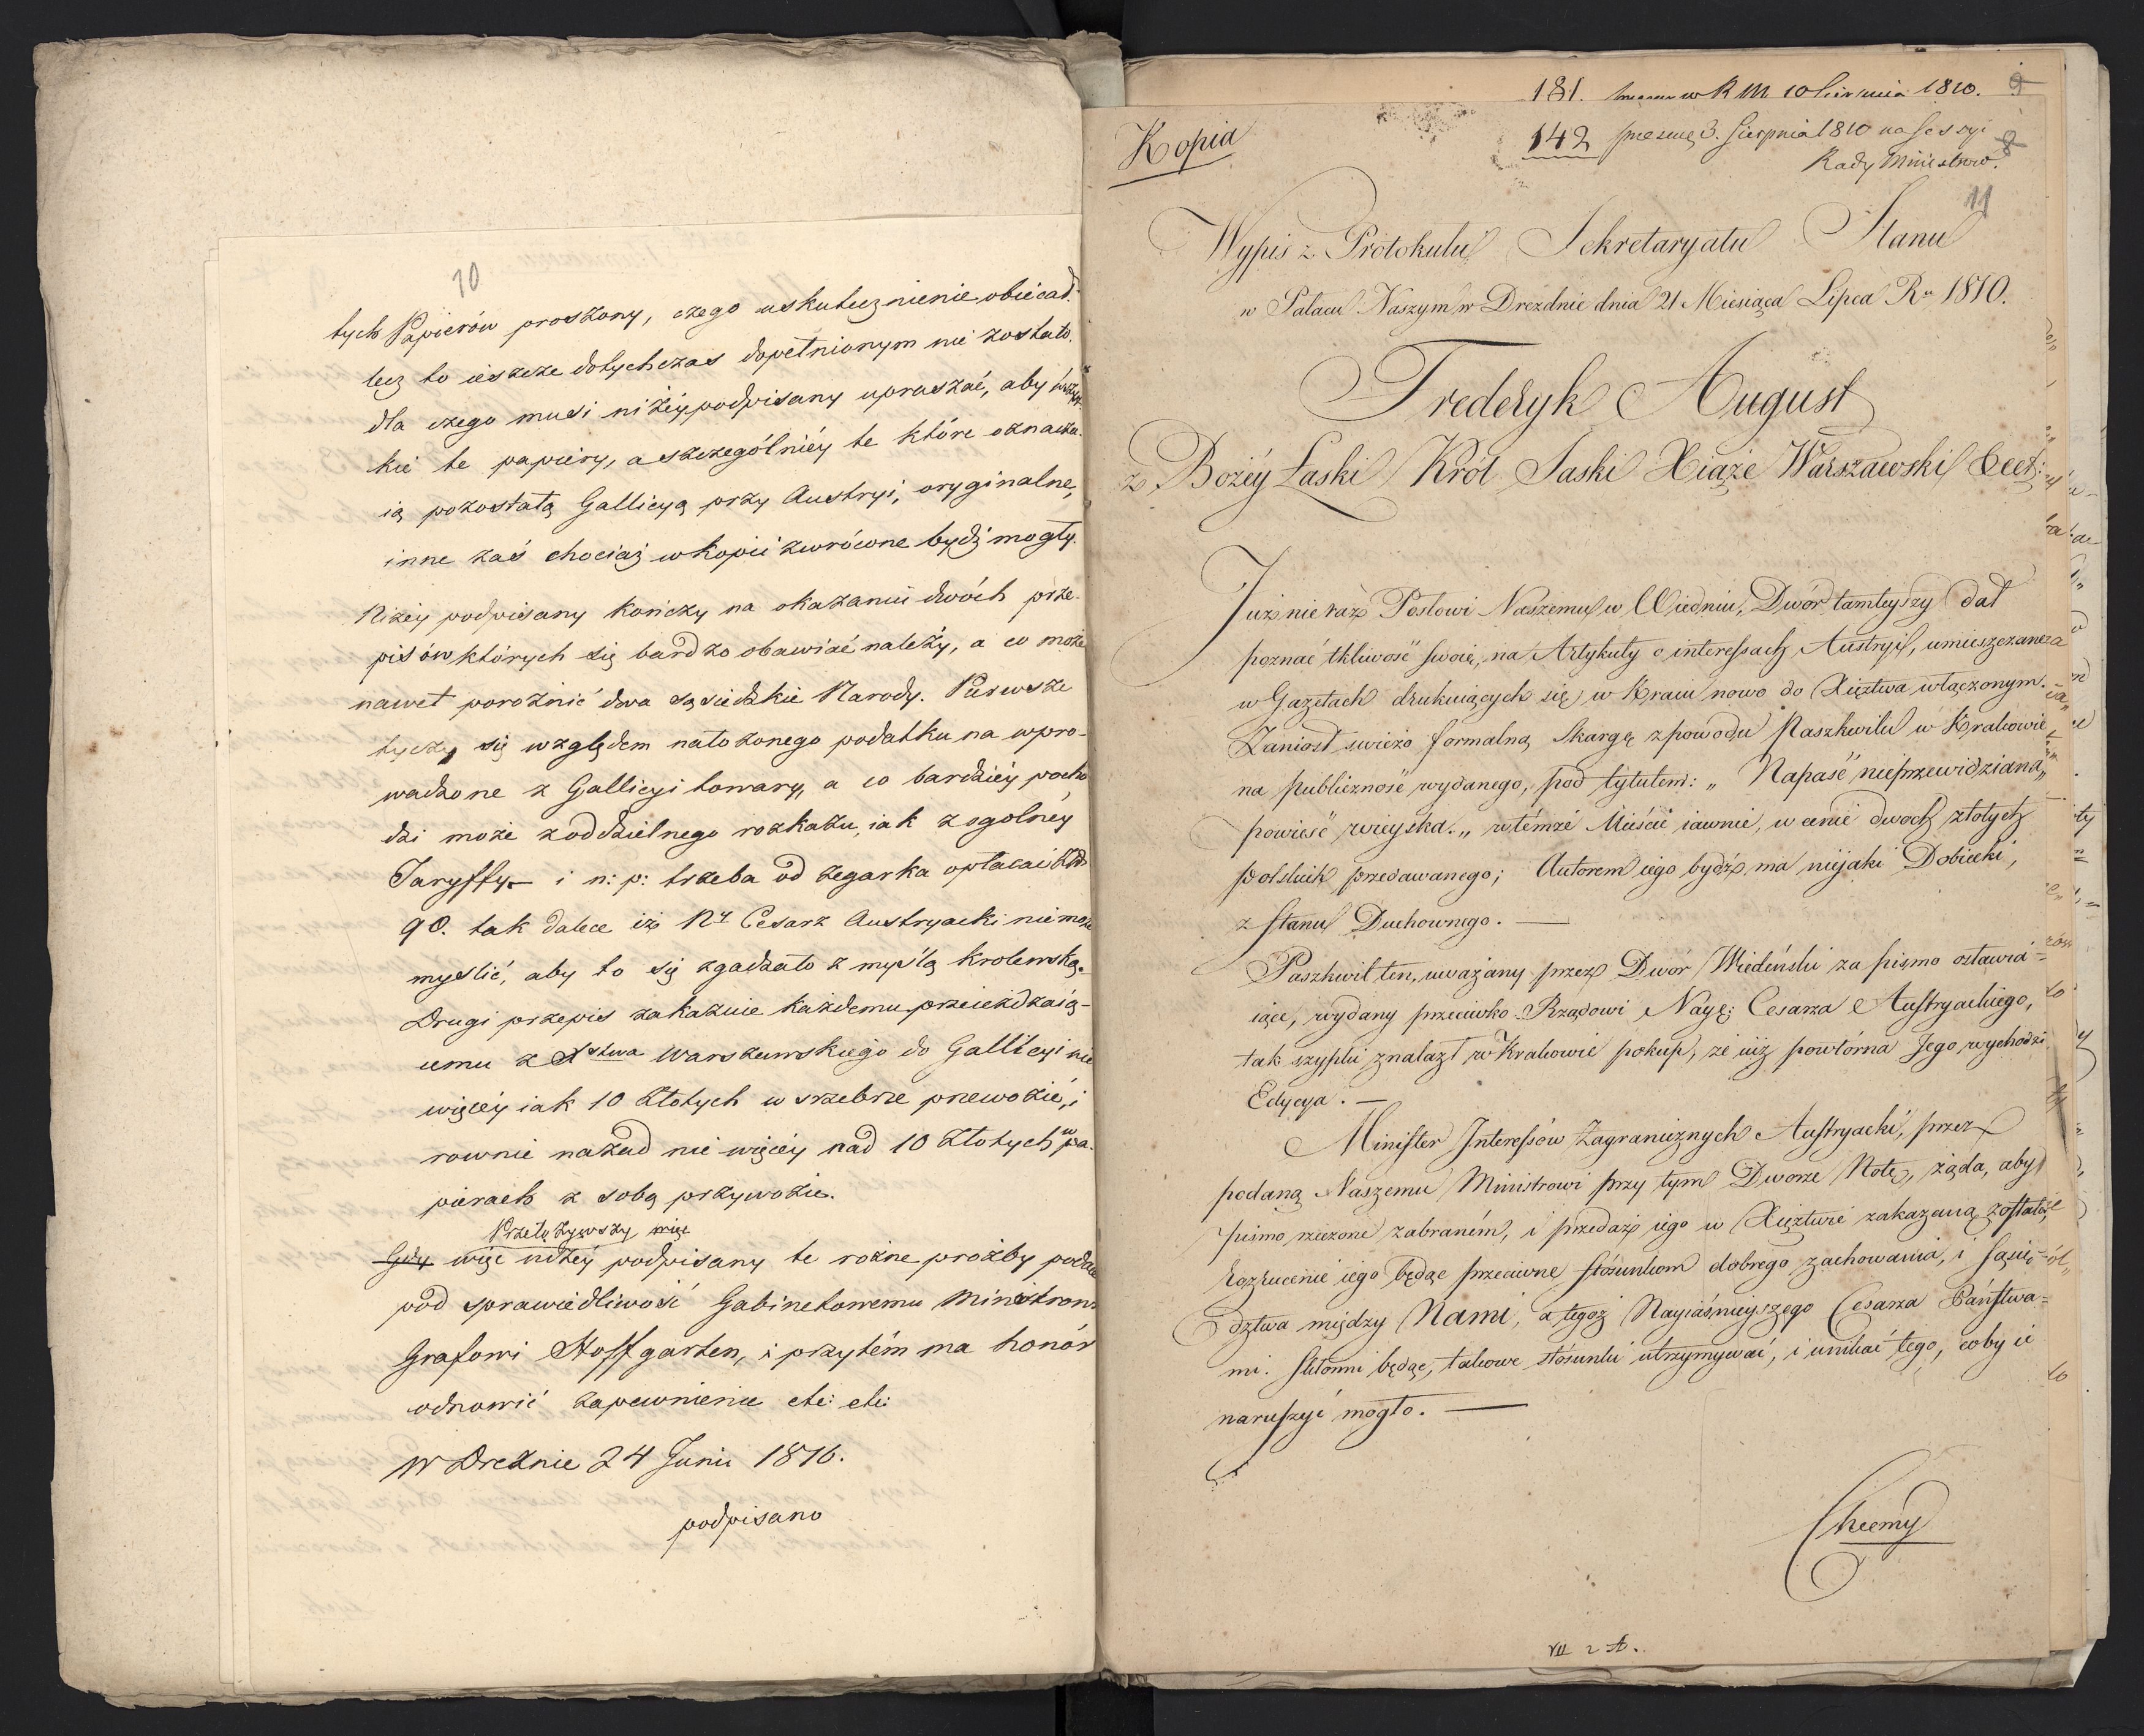 10
tych Papierów proszony, czego uskutecznienie obiecał.
lecz to ieszcze dotychczas dopełnionym nie zostało.
dla czego musi niżéy podpisany upraszać, aby wszyst-
kie te papiéry, a szczególniéy te które oznacza-
ią pozostałą Gallicyą przy Austryi, oryginalne,
inne zaś chociaż w kopii zwrócone bydź mogły.
Niżéy podpisany kończy na okazaniu dwóch prze-
pisów których się bardzo obawiać należy, a co może
nawet poróżnić dwa sąsiedzkie Narody. Pierwsze
tyczy się względem nałożonego podatku na wpro-
wadzone z Gallicyi towary, a co bardziéy pocho
dzi może z oddzielnego rozkazu, iak z ogólnéy
Taryffy — i n: p: trzeba od zegarka opłacać
90. tak dalece iż Ny Cesarz Austryacki nie może
myślić, aby to się zgadzało z myślą krolewską.
Drugi przepis zakazuie każdemu przeieżdzaią-
cemu z Xstwa Warszawskiego do Gallicyi nie
więcéy iak 10 Złotych w srzebrze przewozić, i
rownie nazad nie więcéy nad 10 Złotych w pa-
pierach z sobą przywozić.
Przełożywszy więc
Gdy więc niżéy podpisany te rożne prożby podaie
pod sprawiedliwość Gabinetowemu Ministrowi
Grafowi Hoffgarten, i przytém ma honór
odnowić zapewnienie etc: etc:
W Dreznie 24 Junii 1810.
podpisano
181. w R M 10 Sierpnia 1810. 9
Kopia
142 3. Sierpnia 1810 na Sessyi 8
Rady Ministrów.
11
Wypis z Protokułu Sekretaryatu Stanu
w Pałacu Naszym w Dreźdnie dnia 21 Miesiąca Lipca Ru 1810.
Frederyk August
z Bożéy Łaski Król Saski Xiąże Warszawski &cet:
Już nie raz Posłowi Naszemu w Wiedniu, Dwór tamteyszy dał
poznać tkliwość swoię, na Artykuły o interessach Austryi, umieszczane
w Gazetach drukuiących się w Kraiu nowo do Xięztwa włączonym.
Zaniosł swieżo formalną Skargę z powodu Paszkwilu w Krakowie
na publiczność wydanego, pod tytułem: „ Napaść nieprzewidziana„
powieść wieyska. „ w témże Mieście iawnie, w cenie dwoch złotych
polskich przedawanego; Autorem iego bydź ma niejaki Dobiecki,
z Stanu Duchownego. —
Paszkwil ten, uważany przez Dwór Wiedeński za pismo osławia=
iące, wydany przeciwko Rządowi Nayj: Cesarza Austryackiego,
tak szypki znalazł w Krakowie pokup, że iuż powtórna Jego wychodzi
Edycya. —
Minister Interessów Zagranicznych Austryacki, przez
podaną Naszemu Ministrowi przy tym Dworze Notę, żąda, aby
pismo rzeczone zabraném, i przedaż iego w Xięztwie zakazaną została,
rozrzucenie iego będąc przeciwne stósunkom dobrego zachowania, i sąsie=
dztwa między Nami, a tegoż Nayiaśnieyszego Cesarza Państwa=
mi. Skłonni będąc, takowe stósunki utrzymywać, i unikać tego, coby ie
naruszyć mogło. —
Chcemy
VII 2 A.